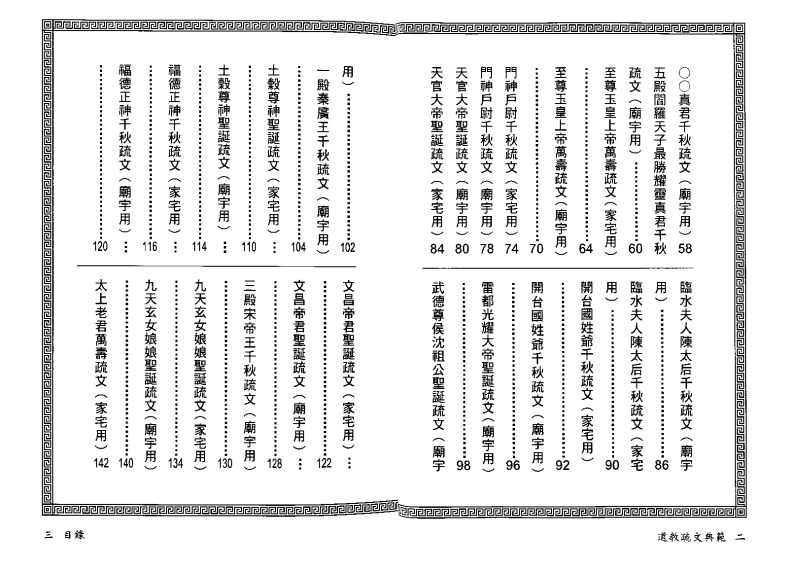 ○○真君千秋疏文（廟宇用）58
五殿閻羅天子最勝耀靈真君千秋
疏文（廟宇用）⋯⋯⋯⋯60
至尊玉皇上帝萬壽疏文（家宅用）
⋯⋯⋯⋯⋯⋯⋯⋯64
至尊玉皇上帝萬壽疏文（廟宇用）
⋯⋯⋯⋯⋯⋯⋯⋯70
門神戶尉千秋疏文（家宅用）74
門神戶尉千秋疏文（廟宇用）78
天官大帝聖誕疏文（廟宇用）80
天官大帝聖誕疏文（家宅用）84
臨水夫人陳太后千秋疏文（廟宇
用）⋯⋯⋯⋯⋯⋯⋯86
臨水夫人陳太后千秋疏文（家宅
用）⋯⋯⋯⋯⋯⋯⋯90
開台國姓爺千秋疏文（家宅用）
⋯⋯⋯⋯⋯⋯⋯⋯92
開台國姓爺千秋疏文（廟宇用）
⋯⋯⋯⋯⋯⋯⋯⋯96
雷都光耀大帝聖誕疏文（廟宇用）
⋯⋯⋯⋯⋯⋯⋯⋯98
武德尊侯沈祖公聖誕疏文（廟宇
用）⋯⋯⋯⋯⋯⋯⋯102
一殿秦廣王千秋疏文（廟宇用）
⋯⋯⋯⋯⋯⋯⋯⋯104
土穀尊神聖誕疏文（家宅用）⋯
⋯⋯⋯⋯⋯⋯⋯⋯110
土穀尊神聖誕疏文（廟宇用）⋯
⋯⋯⋯⋯⋯⋯⋯⋯114
福德正神千秋疏文（家宅用）⋯
⋯⋯⋯⋯⋯⋯⋯⋯116
福德正神千秋疏文（廟宇用）⋯
⋯⋯⋯⋯⋯⋯⋯⋯120
文昌帝君聖誕疏文（家宅用）⋯
⋯⋯⋯⋯⋯⋯⋯⋯122
文昌帝君聖誕疏文（廟宇用）⋯
⋯⋯⋯⋯⋯⋯⋯⋯128
三殿宋帝王千秋疏文（廟宇用）
⋯⋯⋯⋯⋯⋯⋯⋯130
九天玄女娘娘聖誕疏文（家宅用）
⋯⋯⋯⋯⋯⋯⋯⋯134
九天玄女娘娘聖誕疏文（廟宇用）
⋯⋯⋯⋯⋯⋯⋯⋯140
太上老君萬壽疏文（家宅用）142
道教疏文典範 二
三 目錄